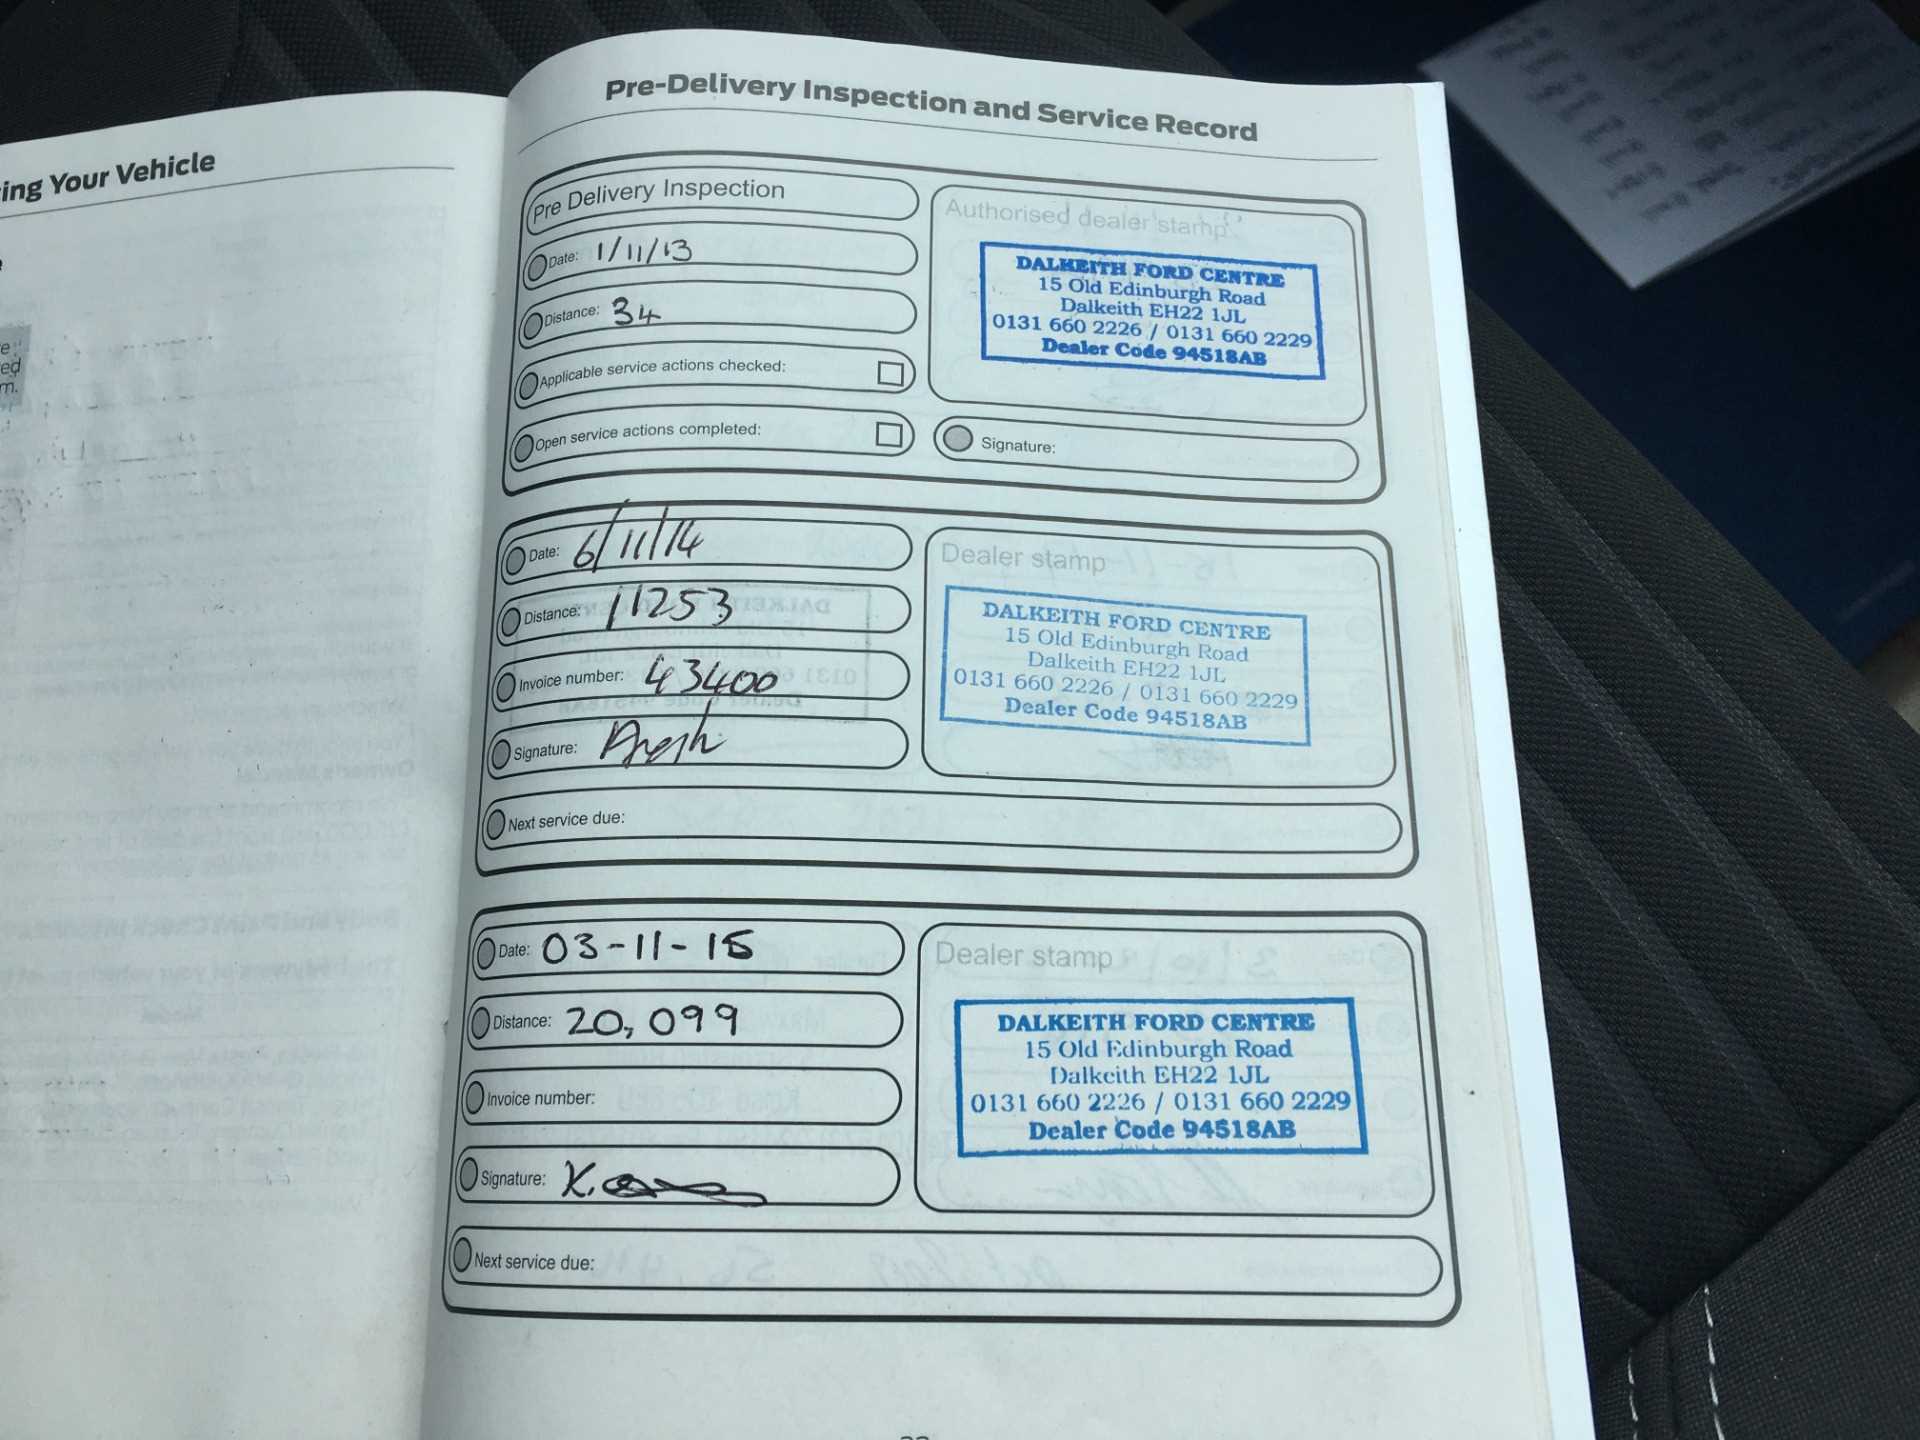 ing Your Vehicle
Pre-Delivery Inspection and Service Record
Pre Delivery Inspection
Date: 1/11/13
Distance: 34
Applicable service actions checked:
Open service actions completed:
Authorised dealer stamp
DALKEITH FORD CENTRE
15 Old Edinburgh Road
Dalkeith EH22 1JL
0131 660 2226 / 0131 660 2229
Dealer Code 94518AB
Signature:
Date: 6/11/14
Distance: 11253
Invoice number: 43400
Signature:
Dealer stamp
DALKEITH FORD CENTRE
15 Old Edinburgh Road
Dalkeith EH22 1JL
0131 660 2226 / 0131 660 2229
Dealer Code 94518AB
Next service due:
Date: 03-11-15
Distance: 20,099
Invoice number:
Signature: K.
Dealer stamp
DALKEITH FORD CENTRE
15 Old Edinburgh Road
Dalkeith EH22 1JL
0131 660 2226 / 0131 660 2229
Dealer Code 94518AB
Next service due: